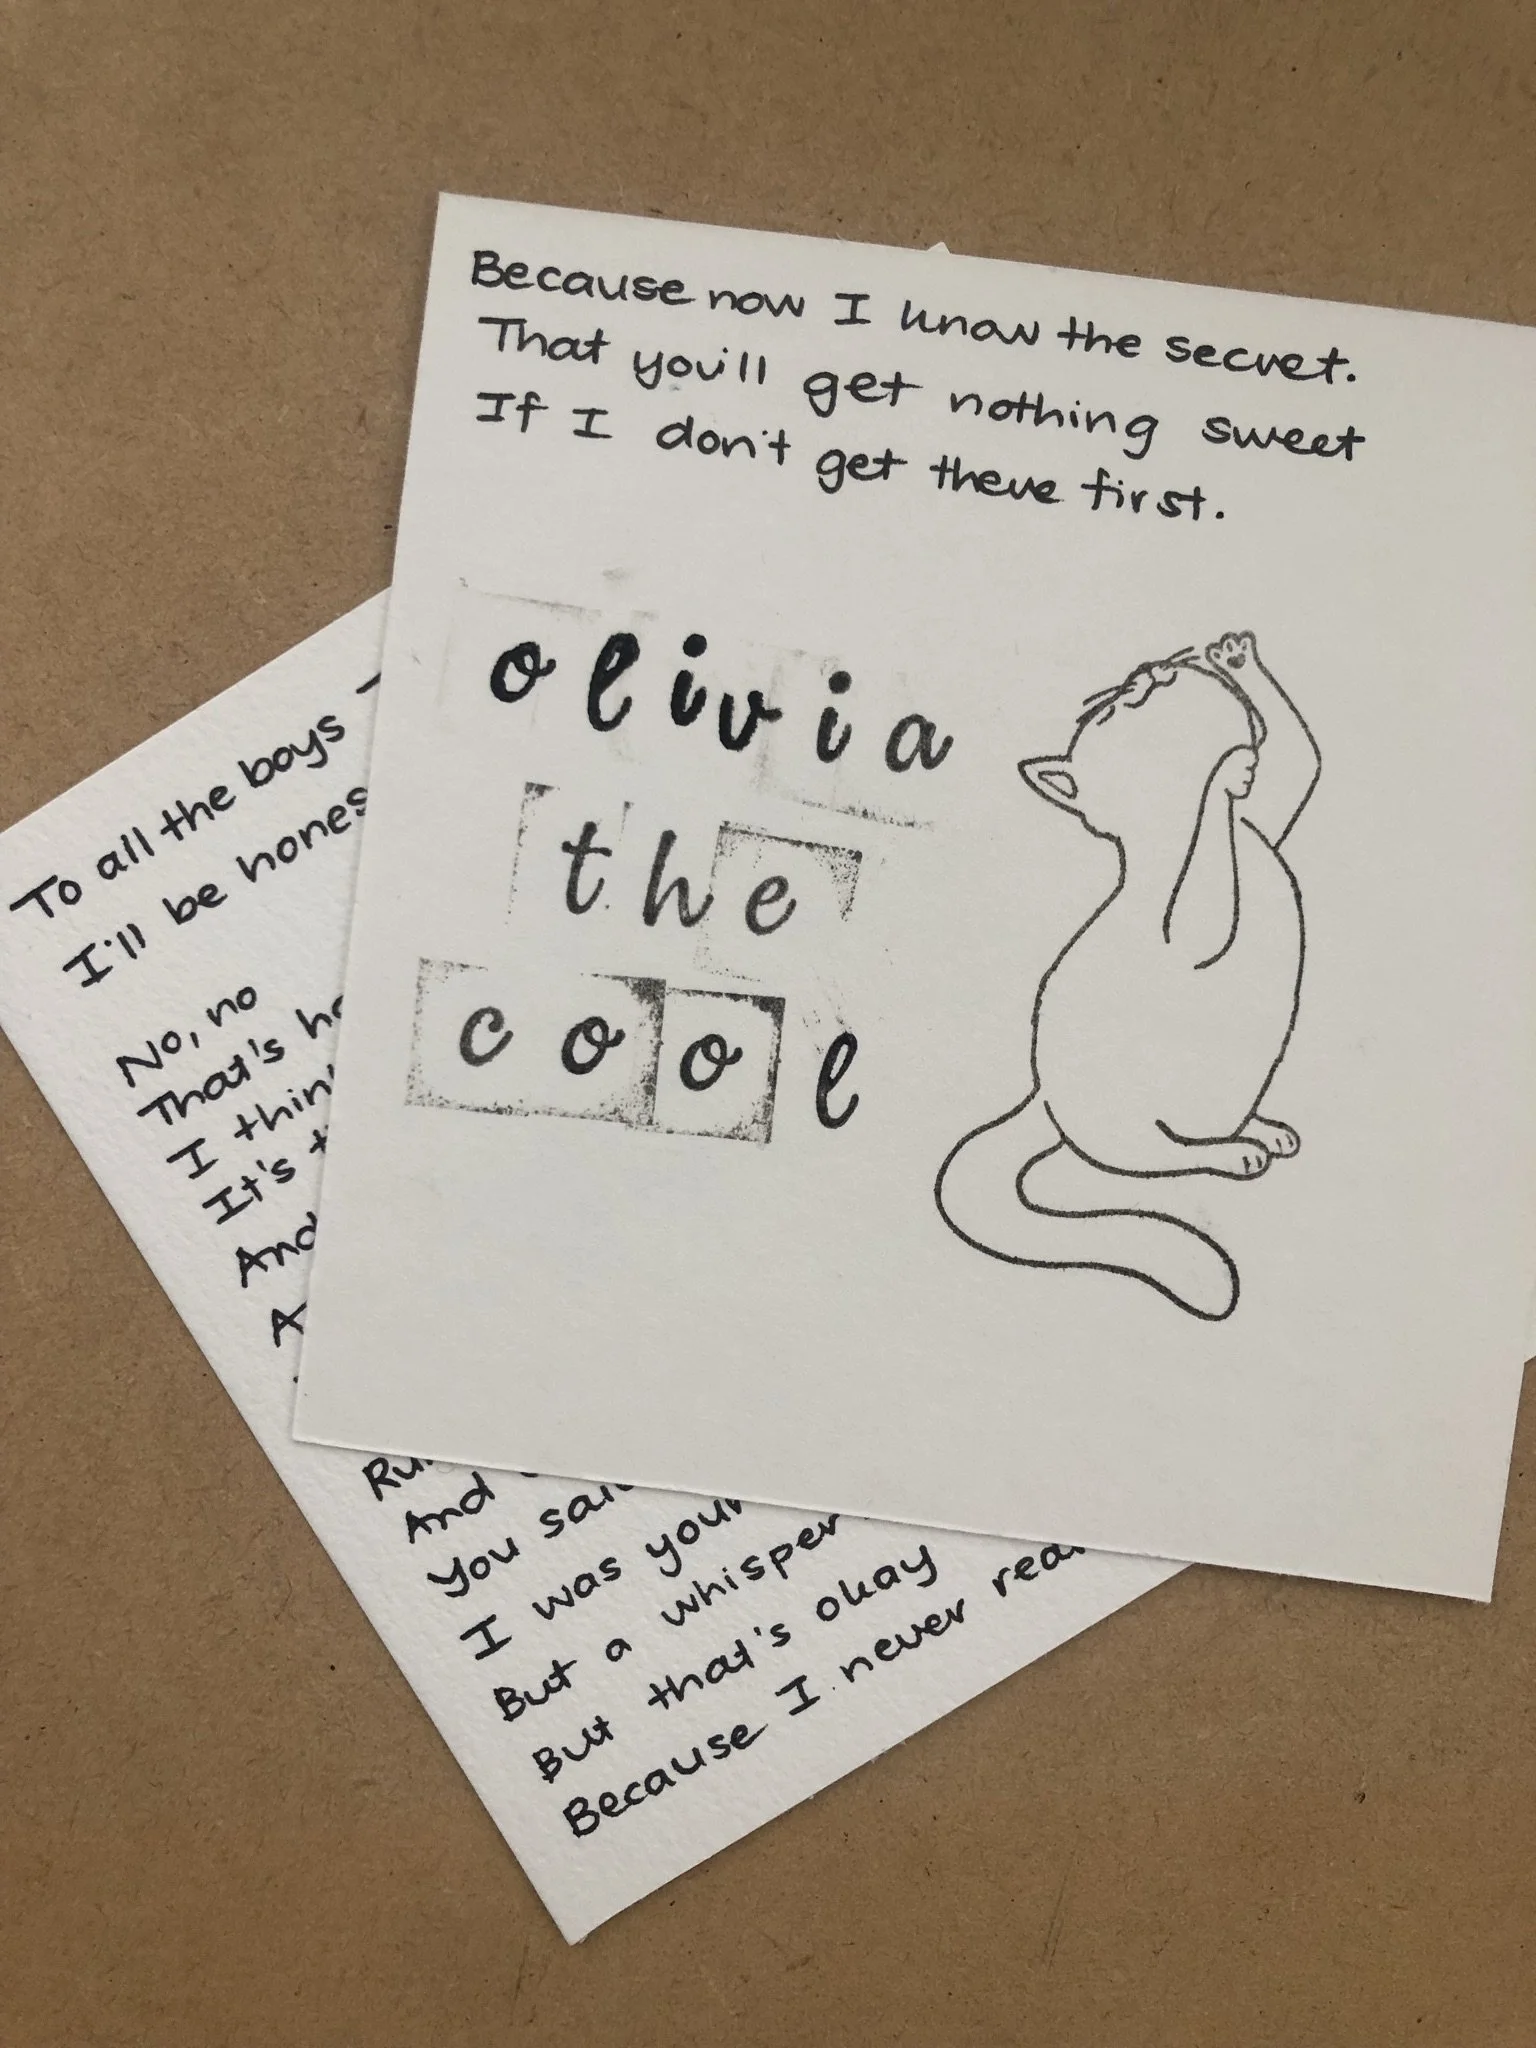 Because now I know the secret.
That you'll get nothing sweet
If I don't get there first.
olivia
the
cool
To all the boys
I'll be
No, no
That's
I
It's
And
And
You
I was
But a whisper
But that's okay
Because I never